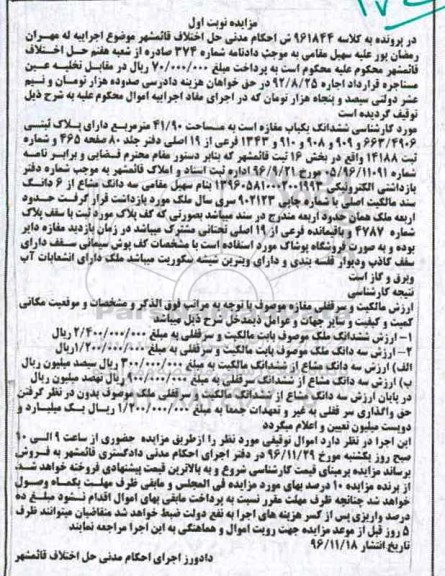 مزایده نوبت اول
در پرونده به کلاسه ۹۶۱۸۴۴ ش احکام مدنی حل اختلاف قائمشهر موضوع اجراییه له مهران
رمضان پور علیه سهیل مقامی به موجب دادنامه شماره ۳۷۴ صادره از شعبه هفتم حل اختلاف
قائمشهر محکوم علیه محکوم است به پرداخت مبلغ ۷۰/۰۰۰/۰۰۰ ریال در مقابل تخلیه عین
مستاجره قرارداد اجاره ۹۲/۸/۲۵ در حق خواهان هزینه دادرسی صدوده هزار تومان و نیم
عشر دولتی سیصد و پنجاه هزار تومان که در اجرای مفاد اجراییه اموال محکوم علیه به شرح ذیل
توقیف گردیده است
مورد کارشناسی ششدانگ یکباب مغازه است به مساحت ۴۱/۹۰ مترمربع دارای پلاک ثبتی
۶۶۳/۴۹۰۶ و ۹۰۹ و ۹۰۸ و ۹۱۰ و ۱۳۴۳ فرعی از ۱۹ اصلی دفتر جلد ۸۰ صفحه ۴۶۵ و شماره
ثبت ۱۴۱۸۸ واقع در بخش ۱۶ ثبت قائمشهر که بنابر دستور مقام محترم قضایی و برابر نامه
شماره ۰۵/۹۶/۱۱۰۹۱ مورخ ۹۶/۹/۲۱ اداره ثبت اسناد و املاک قائمشهر به موجب شماره دفتر
بازداشتی الکترونیکی ۱۳۹۶۰۵۸۱۰۰۰۲۰۰۱۹۹۳ بنام سهیل مقامی سه دانگ مشاع از ۶ دانگ
سند مالکیت اصلی با شماره چاپی ۹۰۲۱۲۳ سری سال ملک مورد بازداشت قرار گرفت حدود
اربعه ملک همان حدود اربعه مندرج در سند میباشد بصورتی که کف پلاک مورد ثبت با سقف پلاک
شماره ۴۷۸۷ و باقیمانده فرعی از ۱۹ اصلی تحتانی مشترک میباشد در زمان بازدید مغازه دایر
بوده و به صورت فروشگاه پوشاک مورد استفاده است با مشخصات کف پوش سیمانی سقف دارای
سقف کاذب ودیوار قفسه بندی و دارای ویترین شیشه سکوریت میباشد ملک دارای انشعابات آب
وبرق و گاز است
نتیجه کارشناسی
ارزش مالکیت و سرقفلی مغازه موصوف با توجه به مراتب فوق الذکر و مشخصات و موقعیت مکانی
کمیت و کیفیت و سایر جهات و عوامل ذیمدخل شرح ذیل میباشد
۱- ارزش ششدانگ ملک موصوف بابت مالکیت و سرقفلی به مبلغ ۲/۴۰۰/۰۰۰/۰۰۰ ریال
۲- ارزش سه دانگ ملک موصوف بابت مالکیت و سرقفلی به مبلغ ۱/۲۰۰/۰۰۰/۰۰۰ ریال
الف) ارزش سه دانگ مشاع از ششدانگ مالکیت به مبلغ ۳۰۰/۰۰۰/۰۰۰ ریال سیصد میلیون ریال
ب) ارزش سه دانگ مشاع از ششدانگ سرقفلی به مبلغ ۹۰۰/۰۰۰/۰۰۰ ریال نهصد میلیون ریال
در پایان ارزش سه دانگ مشاع از ششدانگ مالکیت و سرقفلی ملک موصوف بدون در نظر گرفتن
حق واگذاری سر قفلی به غیر و تعهدات جمعا به مبلغ ۱/۲۰۰/۰۰۰/۰۰۰ ریال یک میلیارد و
دویست میلیون تعیین و اعلام میگردد
این اجرا در نظر دارد اموال توقیفی مورد نظر را ازطریق مزایده حضوری از ساعت ۹ الی ۱۰
صبح روز یکشنبه مورخ ۹۶/۱۱/۲۹ در دفتر اجرای احکام مدنی دادگستری قائمشهر به فروش
برساند مزایده برمبنای قیمت کارشناسی شروع و به بالاترین قیمت پیشنهادی فروخته خواهد شد
از برنده مزایده ۱۰ درصد بهای مورد مزایده فی المجلس و مابقی ظرف مهلت یکماه وصول
خواهد شد چنانچه ظرف مهلت مقرر نسبت به پرداخت مابقی بهای اموال اقدام نشود مبلغ ده
درصد واریزی پس از کسر هزینه های اجرا به نفع دولت ضبط خواهد شد متقاضیان میتوانند ظرف
۵ روز قبل از موعد مزایده جهت رویت اموال و هماهنگی به این اجرا مراجعه نمایند
تاریخ انتشار ۹۶/۱۱/۱۸
دادورز اجرای احکام مدنی حل اختلاف قائمشهر